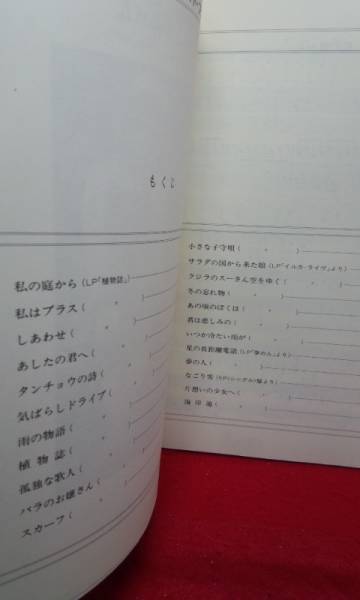 もくじ
私の庭から(LP「植物誌」
私はプラス( 〃 )
しあわせ( 〃 )
あしたの君へ( 〃 )
タンチョウの詩( 〃 )
気ばらしドライブ( 〃 )
雨の物語( 〃 )
植物誌( 〃 )
孤独な歌人( 〃 )
バラのお嬢さん( 〃 )
スカーフ( 〃 )
小さな子守唄( 〃 )
サラダの国から来た娘(LP「イルカ・ライヴ」より)
クジラのスーさん空をゆく( 〃 )
冬の忘れ物( 〃 )
あの頃のぼくは( 〃 )
君は悲しみの( 〃 )
いつか冷たい雨が( 〃 )
星の長距離電話(LP「夢の人」より)
夢の人( 〃 )
なごり雪(EPシングル盤より)
片想いの少女へ( 〃 )
海岸通( 〃 )